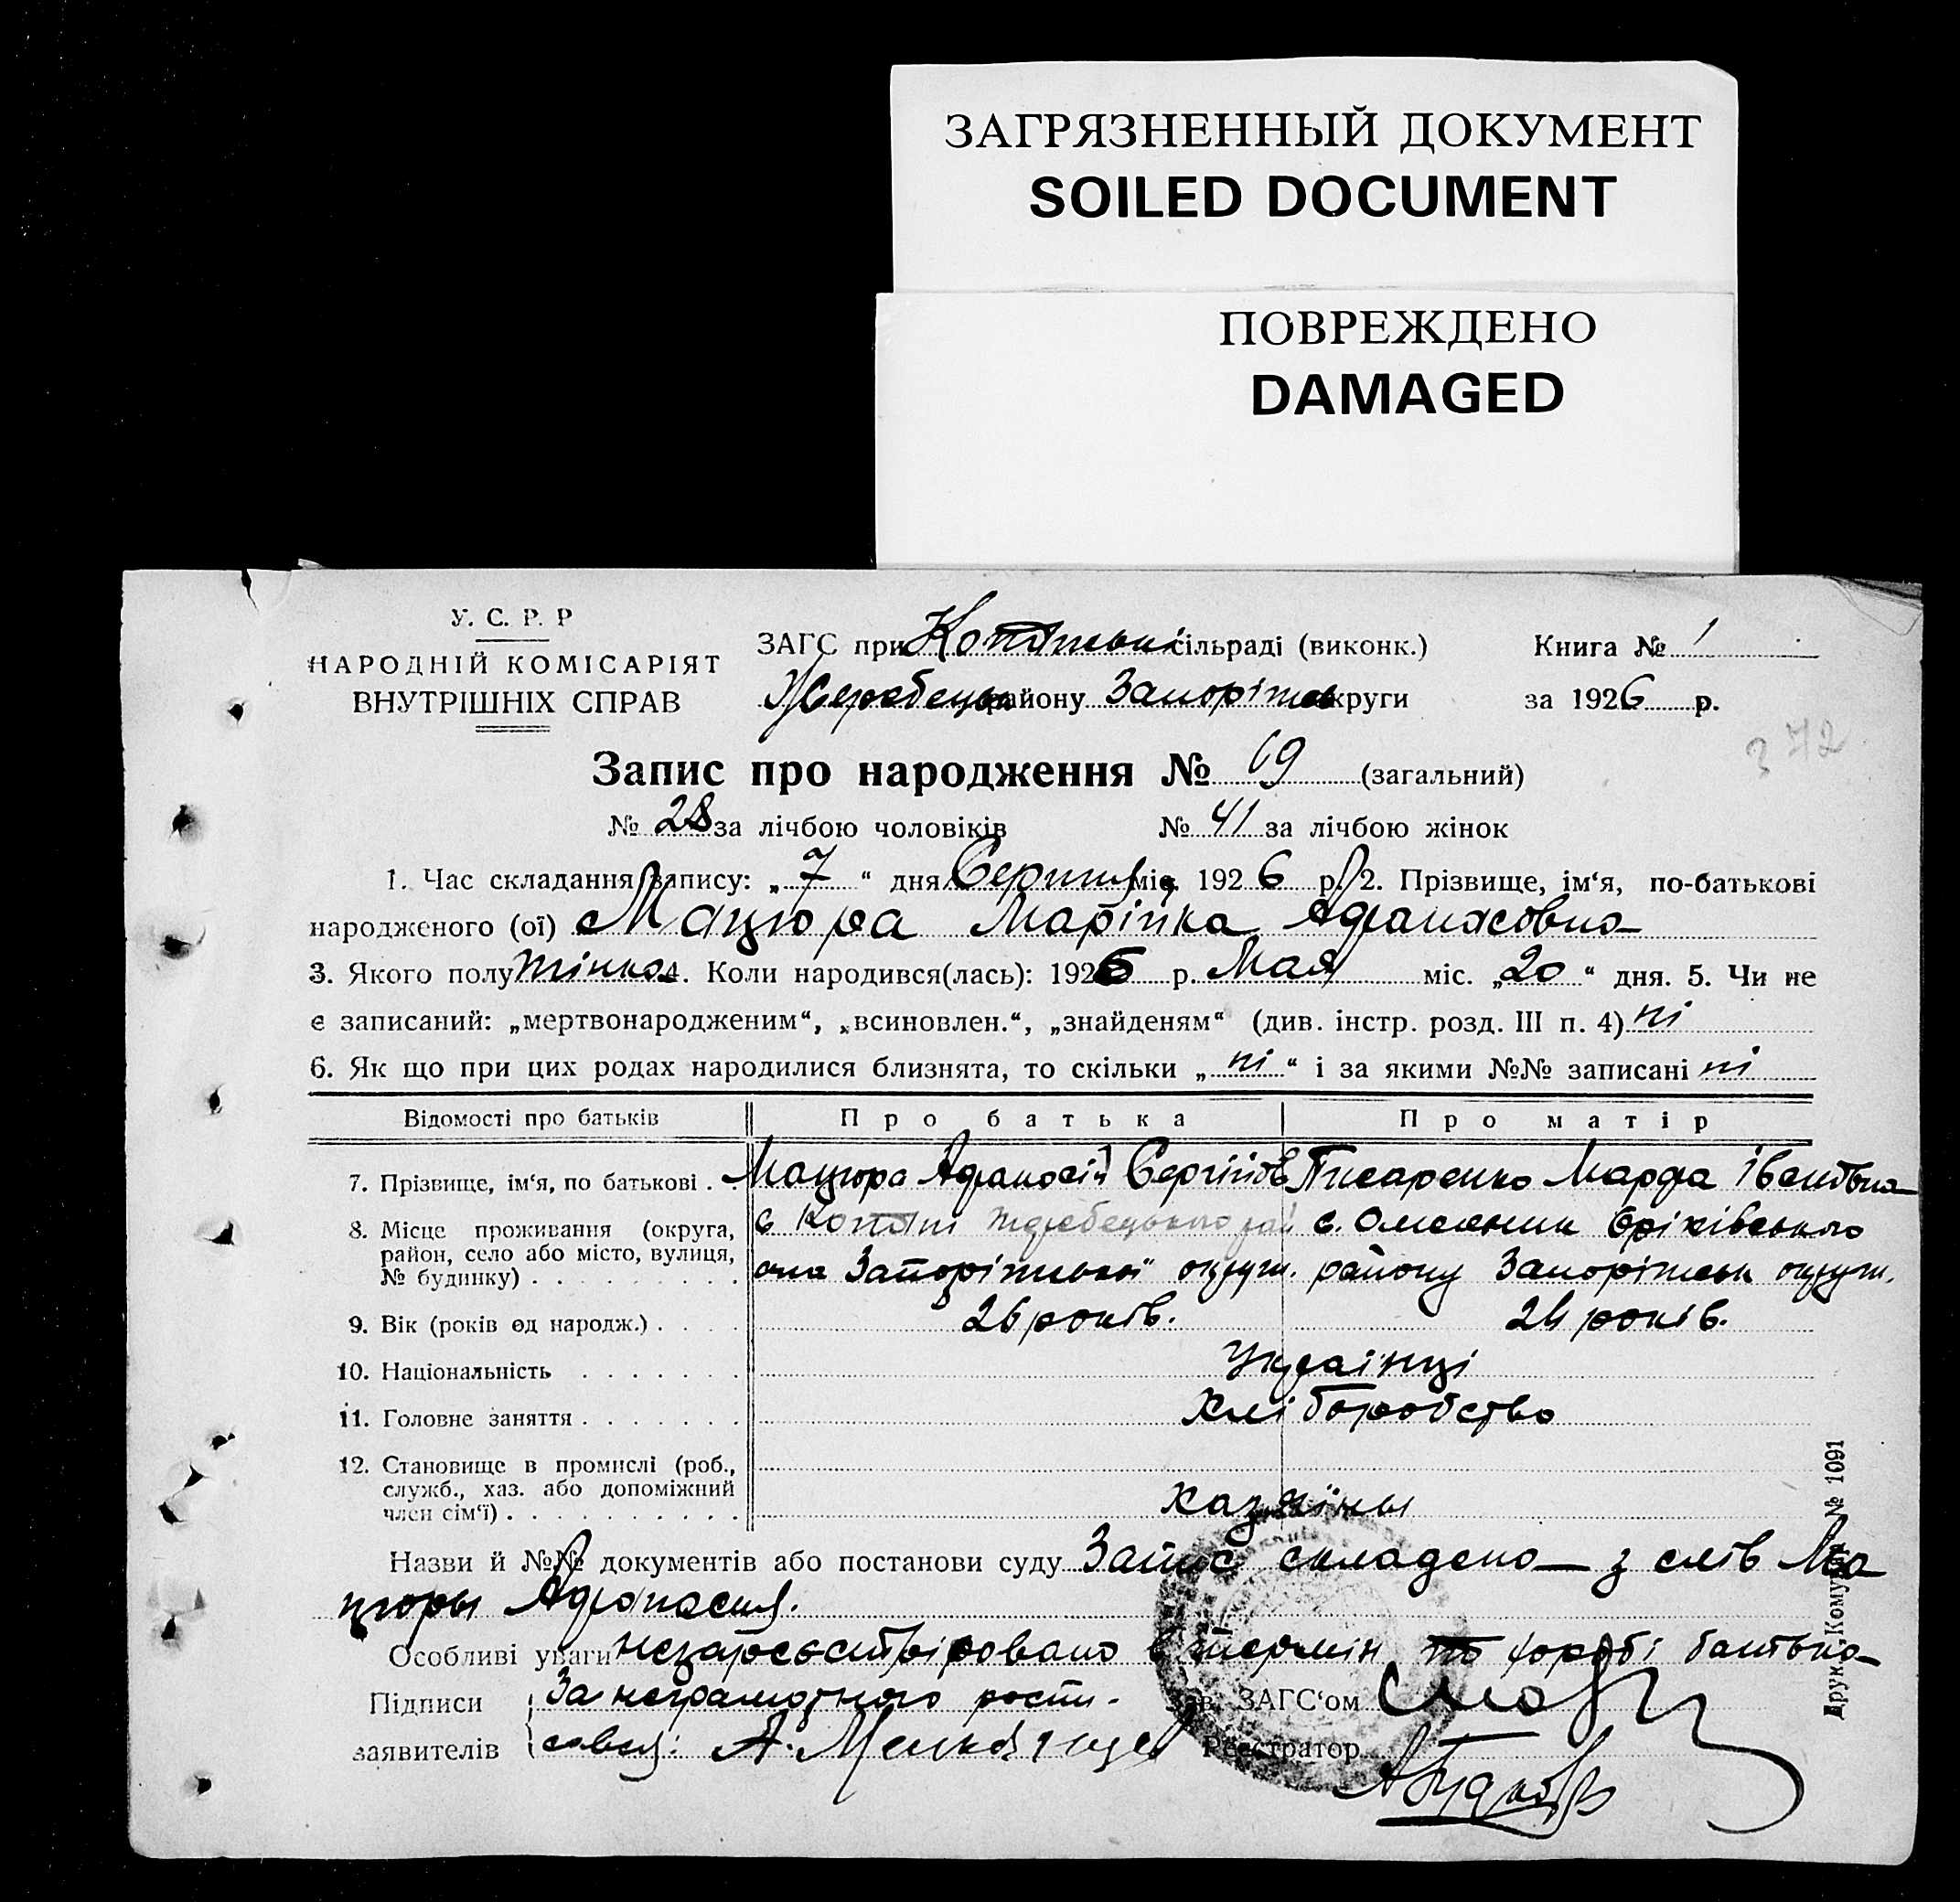 ЗАГРЯЗНЕННЫЙ ДОКУМЕНТ
SOILED DOCUMENT
ПОВРЕЖДЕНО
DAMAGED
У. С. Р. Р
НАРОДНІЙ КОМІСАРІЯТ
ВНУТРІШНІХ СПРАВ
ЗАГС при сільраді (виконк.)
Книга № 1
Жеребецьк району Запоріжськ округи
за 1926 р.
372
Запис про народження № 69 (загальний)
№ 28 за лічбою чоловіків № 41 за лічбою жінок
1. Час складання запису: „ 7 “ дня Серпня міс. 1926 р. 2. Прізвище, ім‘я, по-батькові
народженого (ої) Мацюра Марійка Афанасовна
3. Якого полу жінка 4. Коли народився(лась): 1926 р. Мая міс. „ 20 “ дня. 5. Чи не
є записаний: „мертвонародженим“, „всиновлен.“, „знайденям“ (див. інстр. розд. III п. 4) ні
6. Як що при цих родах народилися близнята, то скільки „ ні “ і за якими №№ записані ні
Відомості про батьків Про батька Про матір
7. Прізвище, ім‘я, по батькові . . Мацюра Афанасій Сергіїов Писаренко Марфа Івановна
8. Місце проживання (округа, район, село або місто, вулиця, № будинку) . . . . . . . . .
с. Жеребецького рай
она Запоріжської округи.
с.
району Запоріжськ округи.
9. Вік (років од народж.) . . . . 26 років. 24 років.
10. Національність . . . . . . . Українці
11. Головне заняття . . . . . . . Хліборобство
12. Становище в промислі (роб., служб., хаз. або допоміжний член сім‘ї) . . . . . . . . . . Хазяїны
Назви й №№ документів або постанови суду Запис складено з слів Ма
цюры Афанасия.
Особливі уваги незареєстріровано в термін по хоробі батька
Підписи заявителів
За неграмотного рости-
савсь: А.
Зав. ЗАГС‘ом
Реєстратор
Друк. Комун. № 1091